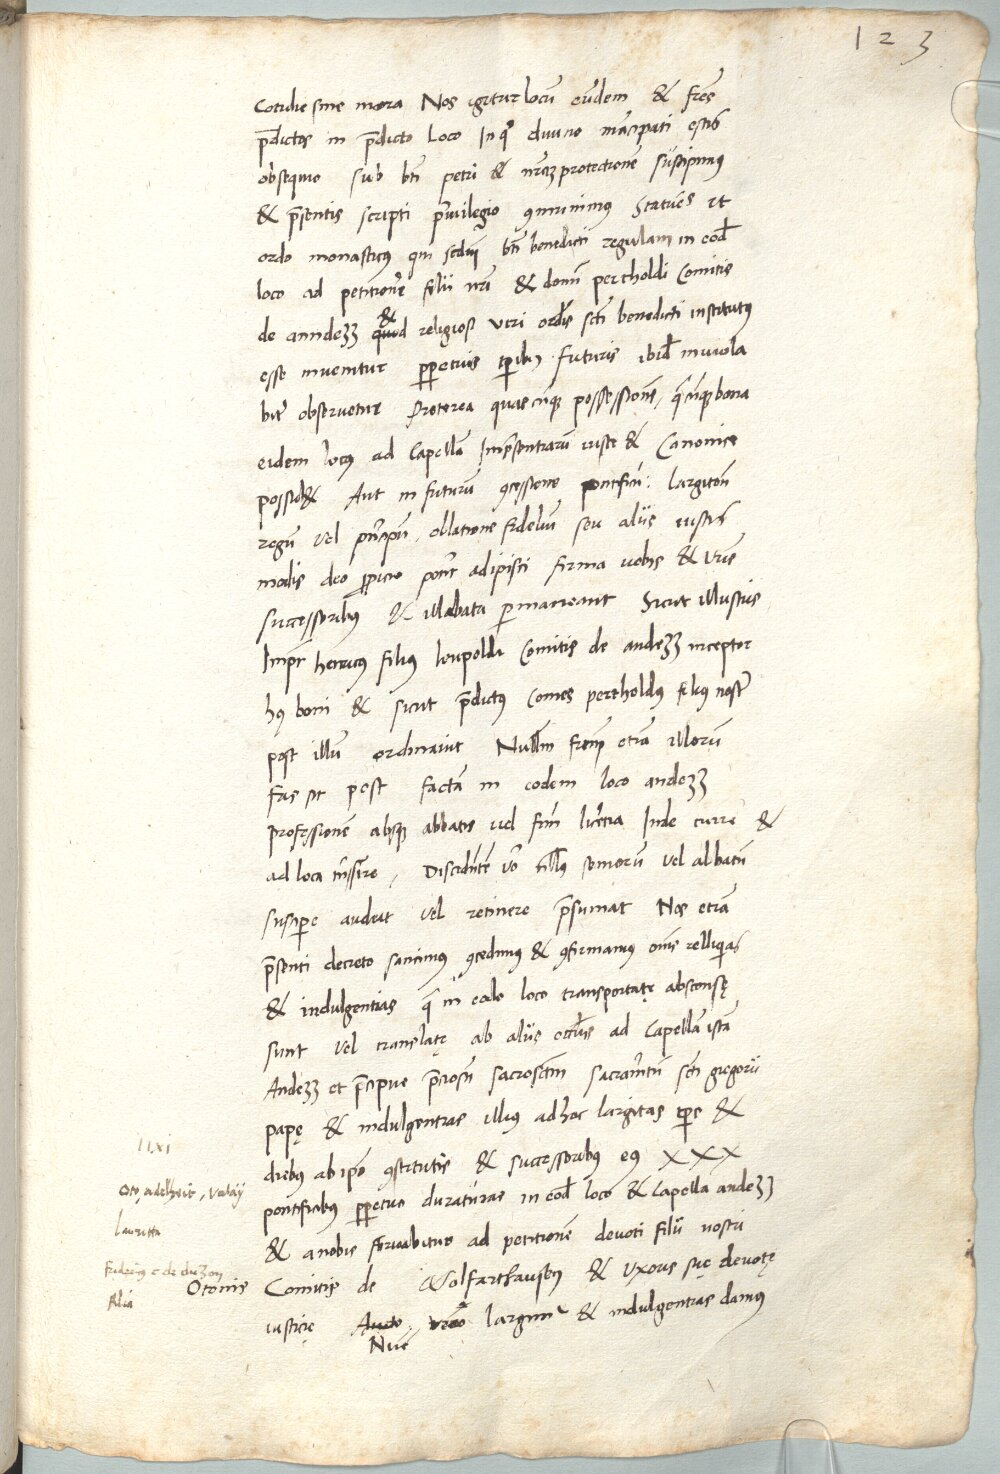 123
Cotidie sine mora Nos igitur locū eūdem & frēs
p̄dictos in p̄dicto Loco In qͦ divino mācipati estis
obsequio sub bt̄i petri & nr̄aʒ protectionē suscipimus
& p̄sentis scripti privilegio ꝯmunimus Statuētes ut
ordo monasticꝯ qui scd̄m bt̄i benedicti regulam in eod̄
loco ad petitionē filii nr̄i & domī pertholdi Comitis
de anndeʒʒ & religiosꝯ viri ord̄is sct̄i benedicti institutꝯ
esse invenitur ꝑpetuis tꝑibꝯ futuris ibid̄ inviola
bit̄ observetur Preterea quascūqꝫ possessiones, q̄cūqꝫ bona
eidem locꝯ ad Capellā Imp̄sentiarū iuste & Canonice
possid& Aut in futurū ꝯcessione pontificū: largitōn
regū vel principū, ollatione fidelium seu aliis iustis
modis deo ꝓpicio poterit adipisci firma vobis & vr̄is
successoribus & illibata ꝑmaneant Sicut illustris
Impr̄ henricus filius leupoldi Comitis de andeʒʒ inceptor
hꝯ boni & sicut p̄dictꝯ Comes pertholdꝯ filiꝯ noster
post illū ordinavit Nullī frm̄ etiā illorū
fas sit post factā in eodem loco andeʒʒ
professionē absqꝫ abbatis vel frm̄ licētia Inde
& ad loca trāsire, Discedentē vͦ nullꝯ semorū vel abbatū
suscipere audeat vel retinere p̄sumat Nos etiā
p̄senti decreto sancimus ꝯcedimus & ꝯfirmamus om̄s relliquias
& indulgentias q̄ in eode loco transportatę absconsę
sunt vel translatę ab aliis ecclis ad Capellā istā
Andeʒʒ et p̄cipue p̄ciosū sacrosctm̄ sacramentū sct̄i gregorii
papę & indulgentias illius adhoc largitas tꝑe &
diebus ab ipō ꝯstitutis & successoribꝯ eꝯ XXX
pontificibꝯ ꝑpetue duraturas in eod̄ loco & Capella andeʒʒ
& a nobis ad petitionē devoti filii nostri
Otonis Comitis de Wolfarthausen & vxoris suę devotę
iusticię Nūc largimur & indulgentias damus
Oto, adelheit, valaÿ
lauretta
Fridericꝯ c de
filia